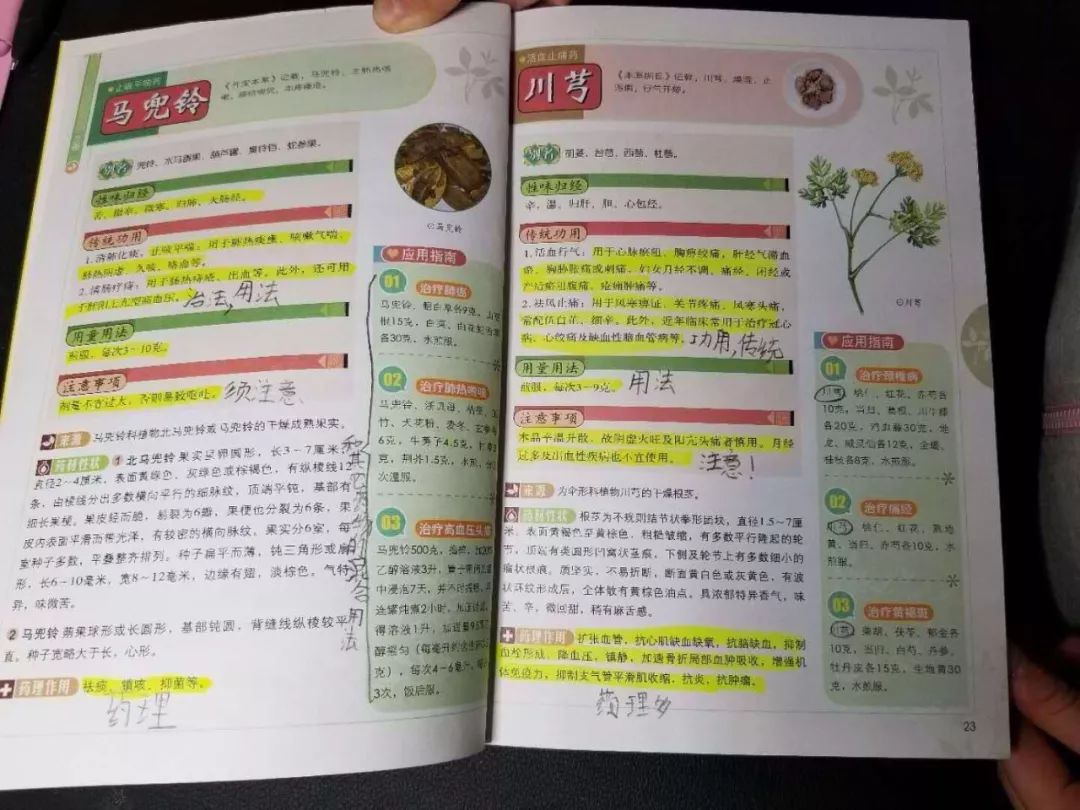 止咳平喘药
马兜铃
《开宝本草》记载，马兜铃，主肺热咳
别名
兜铃、水马香果、葫芦罐、臭铃铛、蛇参果。
性味归经
苦、微辛，微寒。归肺、大肠经。
传统功用
1.清肺化痰，止咳平喘：用于肺热痰壅、咳嗽气喘、
肺热阴虚、久咳、咯血等。
2.清肠疗痔：用于肠热痔疮、出血等。此外，还可用
治法,用法
用量用法
煎服，每次3~10克。
注意事项
剂量不宜过大，否则易致呕吐。
须注意
来源
马兜铃科植物北马兜铃或马兜铃的干燥成熟果实。
药材性状
1 北马兜铃 果实呈卵圆形，长3~7厘米
直径2~4厘米，表面黄绿色、灰绿色或棕褐色，有纵棱线12
条，由棱线分出多数横向平行的细脉纹，顶端平钝，基部有
细长果梗。果皮轻而脆，易裂为6瓣，果梗也分裂为6条，果
皮内表面平滑而带光泽，有较密的横向脉纹，果实分6室，每
室种子多数，平叠整齐排列。种子扁平而薄，钝三角形或扇
形，长6~10毫米，宽8~12毫米，边缘有翅，淡棕色。气特
异，味微苦。
2 马兜铃 蒴果球形或长圆形，基部钝圆，背缝线纵棱较平
直。种子宽略大于长，心形。
药理作用
祛痰、镇咳、抑菌等。
药理
马兜铃
应用指南
01
治疗肺癌
根15克，白英、白花蛇舌草
各30克，水煎服。
02
治疗肺热咳嗽
马兜铃、浙贝母、桔梗
竹、天花粉、麦冬、玄参
6克，牛蒡子4.5克，
克，荆芥1.5克，水煎，分
次温服。
03
治疗高血压头痛
马兜铃500克
乙醇溶液3升
中浸泡7天
连续炖煮2小时
得溶液1升
3次，饭后服。
和其他药物混合用法
活血止痛药
川芎
《本草纲目》记载，川芎，燥湿，止
泻痢，行气开郁。
别名
胡䓖、台芎、西芎、杜芎。
性味归经
辛，温。归肝、胆、心包经。
传统功用
1.活血行气：用于心脉瘀阻、胸痹绞痛，肝经气滞血
瘀、胸胁胀痛或刺痛，妇女月经不调、痛经、闭经或
产后瘀阻腹痛、疮疡肿痛等。
2.祛风止痛：用于风寒痹证、关节疼痛，风寒头痛，
常配伍白芷、细辛。此外，近年临床常用于治疗冠心
病、心绞痛及缺血性脑血管病等。
功用,传统
用量用法
煎服，每次3~9克。
用法
注意事项
本品辛温升散，故阴虚火旺及阳亢头痛者慎用。月经
过多及出血性疾病也不宜使用。
注意!
来源
为伞形科植物川芎的干燥根茎。
药材性状
根茎为不规则结节状拳形团块，直径1.5~7厘
米。表面黄褐色至黄棕色，粗糙皱缩，有多数平行隆起的轮
节，顶端有类圆形凹窝状茎痕，下侧及轮节上有多数细小的
瘤状根痕。质坚实，不易折断，断面黄白色或灰黄色，有波
状环纹形成层，全体散有黄棕色油点。具浓郁特异香气，味
苦、辛，微回甜，稍有麻舌感。
药理作用
扩张血管，抗心肌缺血缺氧，抗脑缺血，抑制
血栓形成，降血压，镇静，加速骨折局部血肿吸收，增强机
体免疫力，抑制支气管平滑肌收缩，抗炎，抗肿瘤。
药理多
川芎
应用指南
01
治疗颈椎病
川芎、桃仁、红花、赤芍各
10克，当归、葛根、川牛膝
各20克，鸡血藤30克，地
龙、威灵仙各12克，全蝎、
桂枝各8克，水煎服。
02
治疗痛经
川芎、桃仁、红花、熟地
黄、当归、赤芍各10克，水
煎服。
03
治疗黄褐斑
川芎、柴胡、茯苓、郁金各
10克，当归、白芍、丹参、
牡丹皮各15克，生地黄30
克，水煎服。
23